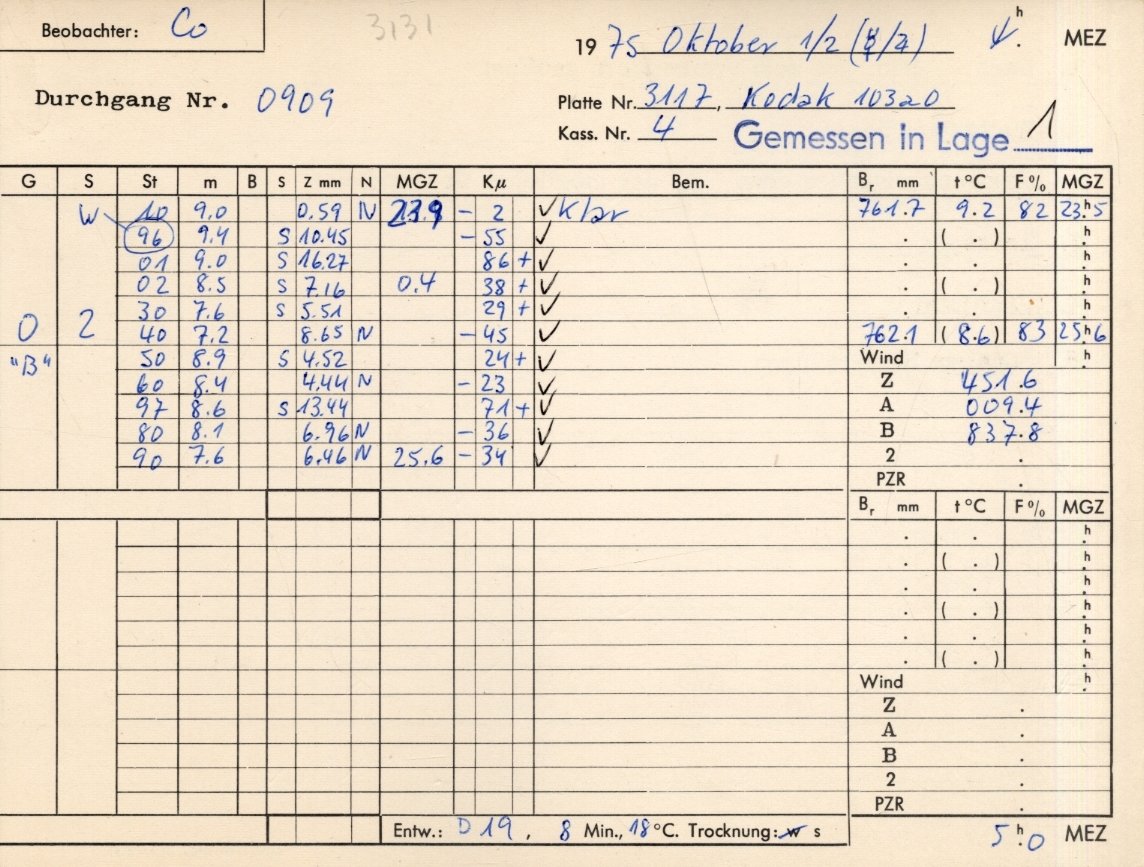 Beobachter: Co
3131
1975 Oktober 1/2 h. MEZ
Durchgang Nr. 0909
Platte Nr. 3117, Kodak 103aO
Kass. Nr. 4 Gemessen in Lage 1
G S St m B S Z mm N MGZ Kμ Bem. Br mm t °C F % MGZ
W 10 9.0 0.59 N 23.9 - 2 ✓ Klar 761.7 9.2 82 23h.5
96 9.4 S 10.45 - 55 ✓ . ( . ) h.
01 9.0 S 16.27 86 + ✓ . . h.
02 8.5 S 7.16 0.4 38 + ✓ . ( . ) h.
30 7.6 S 5.51 29 + ✓ . . h.
0 2 40 7.2 8.65 N - 45 ✓ 762.1 (8.6) 83 25h.6
"B" 50 8.9 S 4.52 24 + ✓ Wind h
60 8.4 4.44 N - 23 ✓ Z 451.6
97 8.6 S 13.44 71 + ✓ A 009.4
80 8.1 6.96 N - 36 ✓ B 837.8
90 7.6 6.46 N 25.6 - 34 ✓ 2 .
PZR .
Br mm t °C F % MGZ
. . h.
. ( . ) h.
. . h.
. ( . ) h.
. . h.
. ( . ) h.
Wind h.
Z .
A .
B .
2 .
PZR .
Entw.: D 19, 8 Min., 18 °C. Trocknung: w s
5 h.0 MEZ